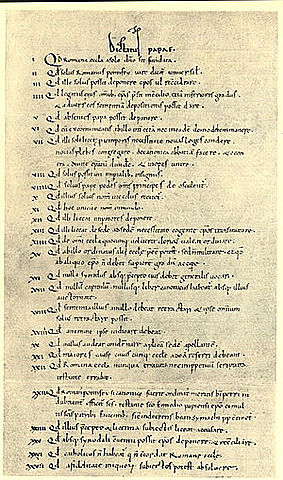 Dictatus papae.
I Qd Romana eccla a solo dno sit fundata.
II Qd solus Romanus pontifex iure dicat universal.
III Qd ille solus possit deponere epos vel reconciliare.
IIII Qd legatus eius omib epis presit in concilio etia inferioris gradus
& adversus eos sententiam depositionis possit dare.
V Qd absentes papa possit deponere.
VI Qd cu excommunicatis ab illo int cetera nec in eade domo debem manere.
VII Qd illi soli licet p temporis necessitate novas leges condere
novas plebes congregare, de canonica abbatia facere & e contra
divite episcopatu dividere & inopes unire.
VIII Qd solus possit uti imperialib insigniis.
VIIII Qd solius pape pedes oms principes deosculent.
X Qd illius solius nom in ecclesiis recitet.
XI Qd hoc unicu est nom in mundo.
XII Qd illi liceat imperatores deponere.
XIII Qd illi liceat de sede ad sede necessitate cogente epos transmutare.
XIIII Qd de omi eccla quocumq voluerit clericu valeat ordinare.
XV Qd ab illo ordinatus alii eccle preesse potest sed non militare et qd
ab aliquo epo n debet superiore gradu accipe.
XVI Qd nulla synodus absq precepto eius debet generalis vocari.
XVII Qd nullu capitulu nullusq liber canonicus habeat absq illius
auctoritate.
XVIII Qd sententia illius a nullo debeat retractari & ipse omnium
solus retractare possit.
XVIIII Qd a nemine ipse iudicari debeat.
XX Qd nullus audeat condemnare aplica sede apellante.
XXI Qd maiores cause cuiuscunq eccle ad ea referri debeant.
XXII Qd Romana eccla nunqua erravit nec inppetuu scriptura
testante errabit.
XXIII Qd Romanus pontifex si canonice fuerit ordinatus meritis b petri in
dubitanter efficit scs testante sco Ennodio papiensi epo ei mul
tis scis patrib faventib sic in decretis beati symachi pp continet.
XXIIII Qd illius precepto & licentia subiectis liceat accusare.
XXV Qd absq synodali conventu possit epos deponere & reconciliare.
XXVI Qd catholicus n habeat q n concordat Romane eccle.
XXVII Qd a fidelitate iniquoru subiectos potest absolvere.